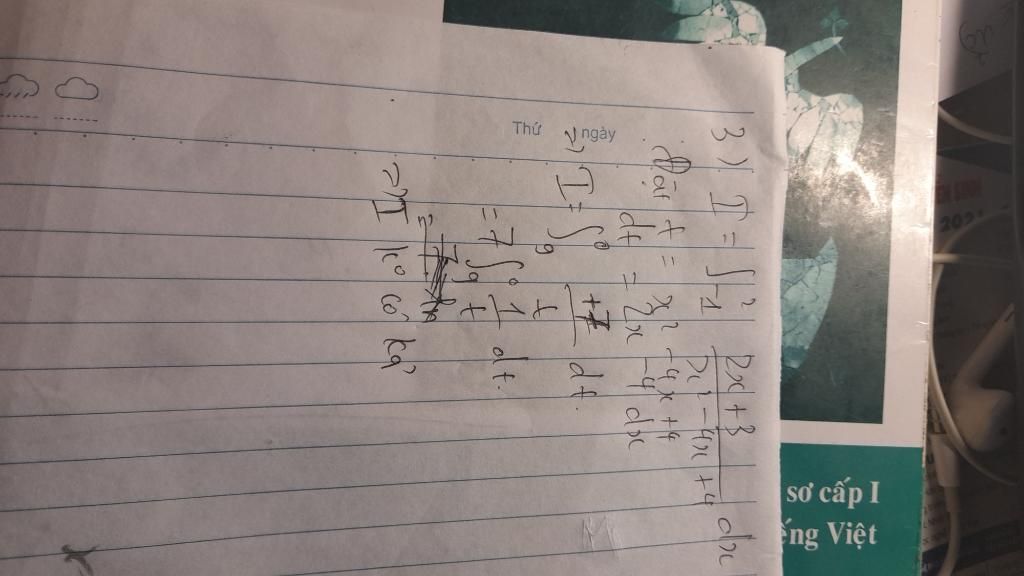 Thứ
ngày
3) I = ∫₋₁² (2x + 3)/(x² - 4x + 4) dx
Đặt t = x² - 4x + 4
dt = 2x - 4 dx
=> I = ∫₉⁰ +7/t dt
= 7 ∫₉⁰ 1/t dt.
= 7
=> I ko có kq
sơ cấp I
ếng Việt
202